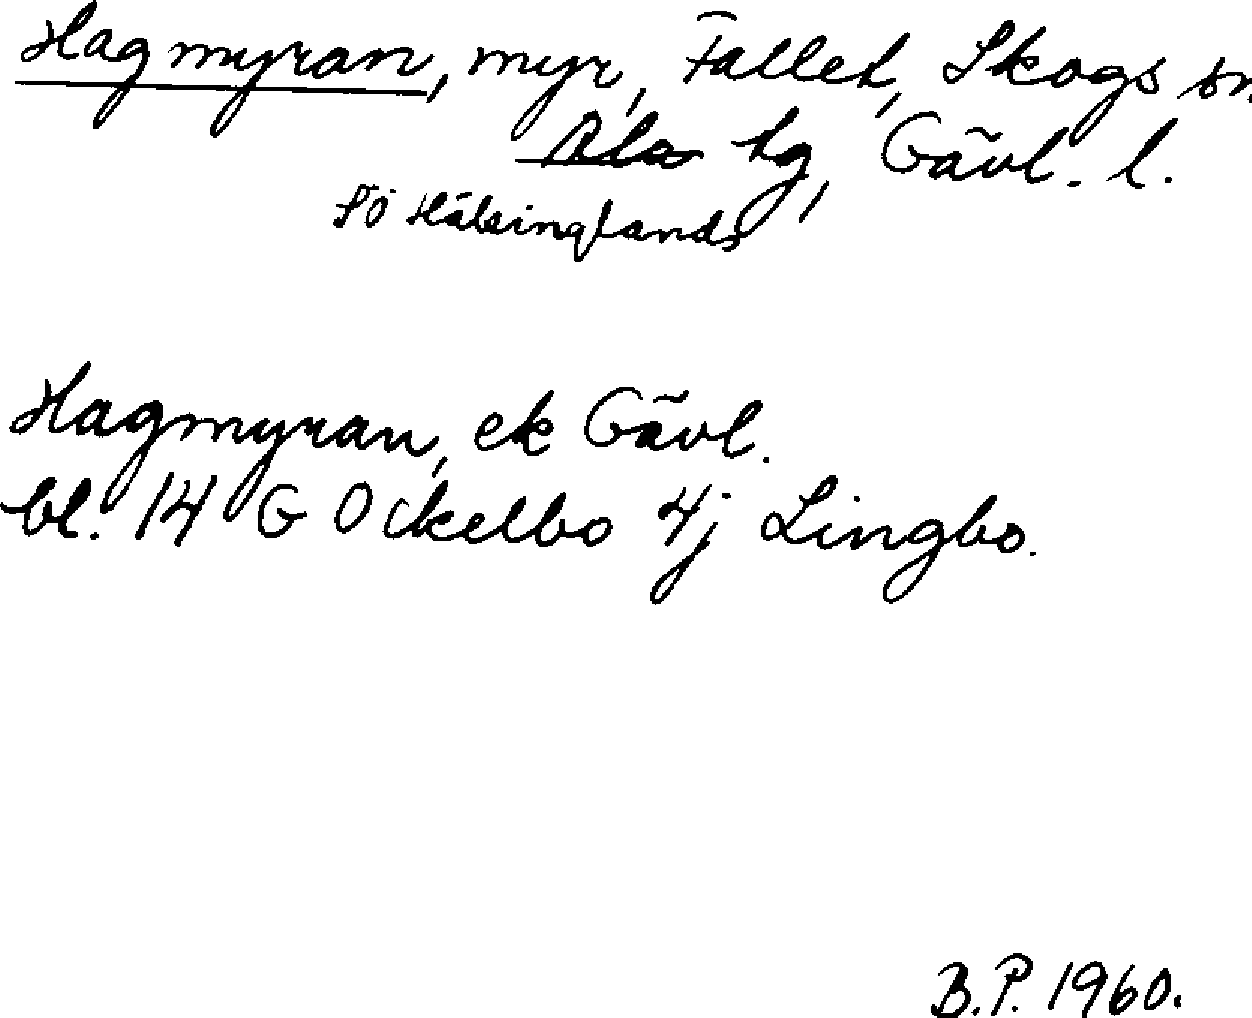 Hagmyran, myr, Fallet, Skogs sn.
Ala hg, Gävl. l.
Sö Hälsinglands
Hagmyran, ek Gävl.
bl. 14 G Ockelbo 4j Lingbo.
B.P. 1960.